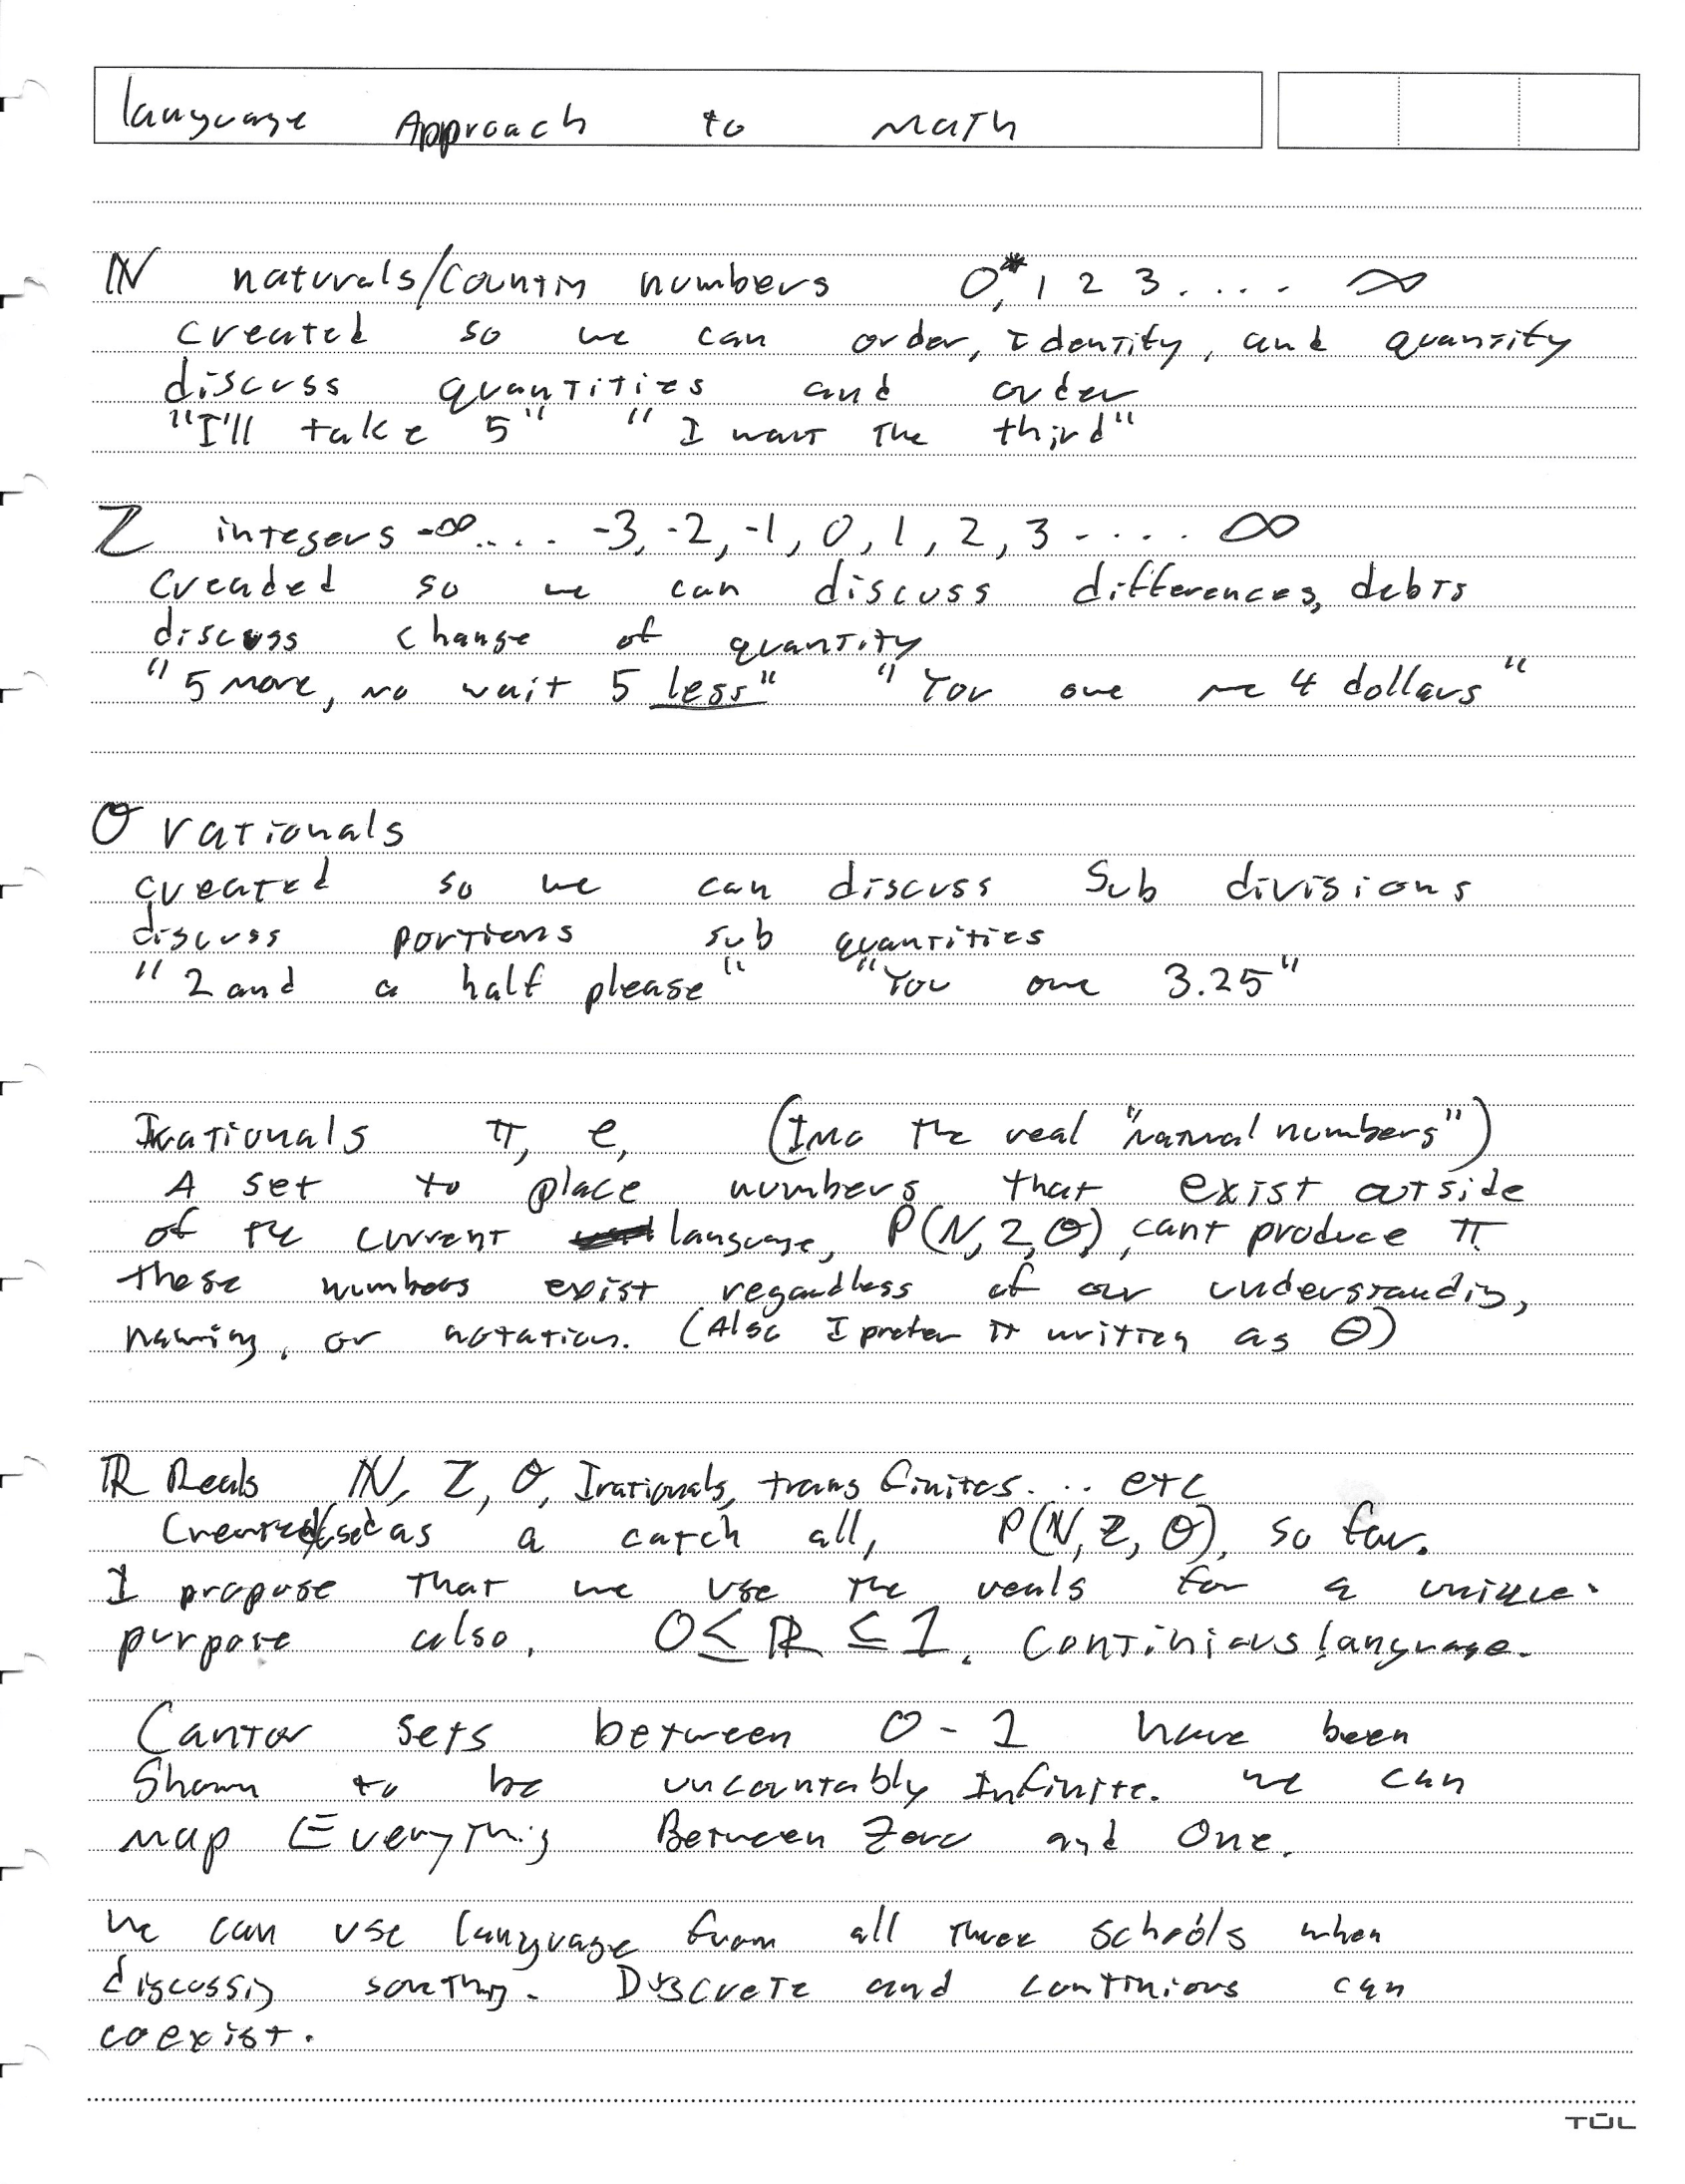 language Approach to Math
ℕ naturals/Countin numbers 0,* 1 2 3 . . . . ∞
Created so we can order, Identity, and quantity
discuss quantities and order
"I'll take 5" "I want the third"
ℤ integers -∞ . . . . -3, -2, -1, 0, 1, 2, 3 . . . . ∞
Creaded so we can discuss differences, debts
discuss change of quantity
"5 more, no wait 5 less" "You owe me 4 dollars"
O rationals
created so we can discuss Sub divisions
discuss portions sub quantities
"2 and a half please" "You owe 3.25"
Irrationals π, e, (Imo the real "natural numbers")
A set to place numbers that exist outside
of the current language, P(N, Z, O), cant produce π
these numbers exist regardless of our understanding,
naming, or notation. (Also I prefer π written as Θ)
ℝ Reals ℕ, Z, O, Irationals, trans finites. . . etc
Created/used as a catch all, P(ℕ, Z, O), so far.
I propose that we use the reals for a unique
purpose also. 0 ≤ ℝ ≤ 1. Continious language.
Cantor sets between 0 - 1 have been
Shown to be uncountably Infinite. we can
map Everything Between Zero and One.
We can use language from all three schools when
discussing something. Discrete and continious can
coexist.
TŪL